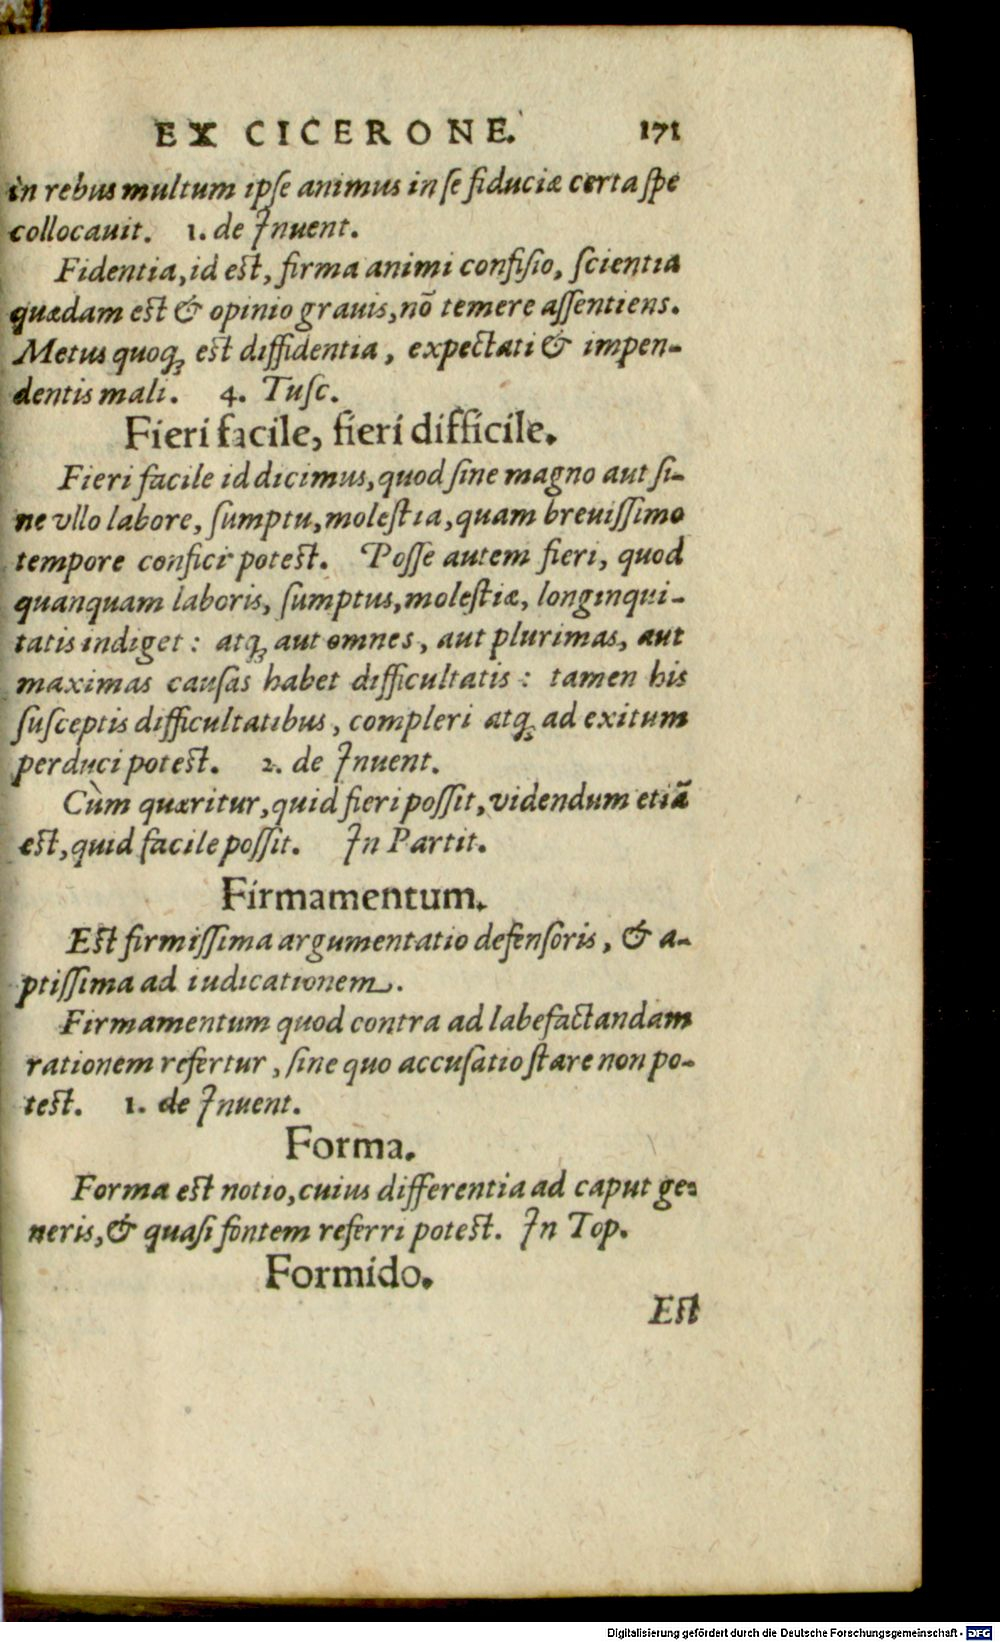 EX CICERONE. 171
in rebus multum ipſe animus in ſe fiduciæ certa ſpe
collocauit. 1. de Inuent.
Fidentia, id eſt, firma animi confiſio, ſcientia
quædam eſt & opinio grauis, nō temere aſſentiens.
Metus quoqꝫ eſt diffidentia, expectati & impen-
dentis mali. 4. Tuſc.
Fieri facile, fieri difficile.
Fieri facile id dicimus, quod ſine magno aut ſi-
ne vllo labore, ſumptu, moleſtia, quam breuiſſimo
tempore confici poteſt. Poſſe autem fieri, quod
quanquam laboris, ſumptus, moleſtiæ, longinqui-
tatis indiget: atqꝫ aut omnes, aut plurimas, aut
maximas cauſas habet difficultatis: tamen his
ſuſceptis difficultatibus, compleri atqꝫ ad exitum
perduci poteſt. 2. de Inuent.
Cùm quæritur, quid fieri poſſit, videndum etiā
eſt, quid facile poſſit. In Partit.
Firmamentum.
Eſt firmiſſima argumentatio defenſoris, & a-
ptiſſima ad iudicationem.
Firmamentum quod contra ad labefactandam
rationem refertur, ſine quo accuſatio ſtare non po-
teſt. 1. de Inuent.
Forma.
Forma eſt notio, cuius differentia ad caput ge-
neris, & quaſi fontem referri poteſt. In Top.
Formido.
Eſt
Digitalisierung gefördert durch die Deutsche Forschungsgemeinschaft - DFG